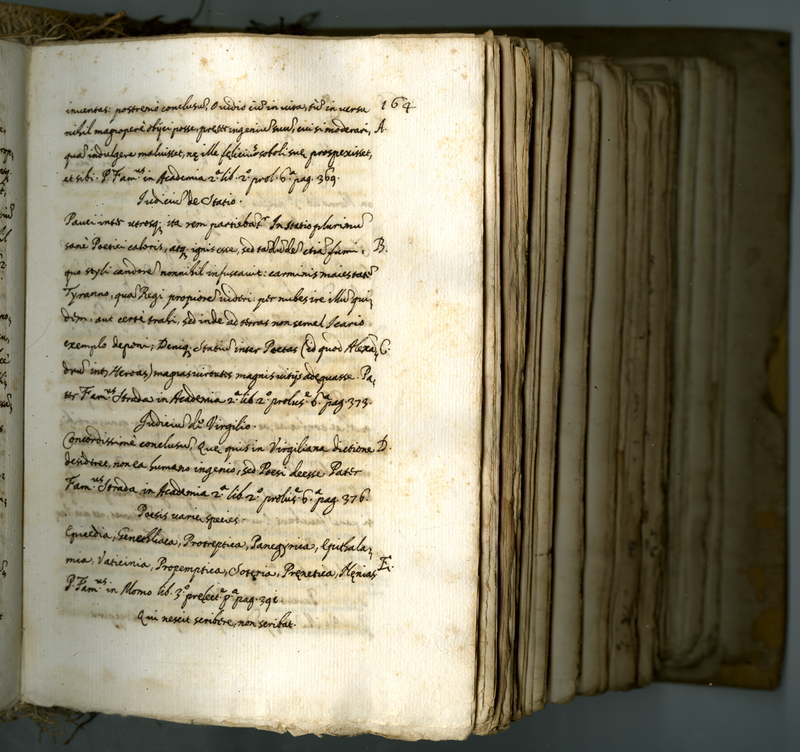 inventas: postremò conclusũ, Ovidio cũ in vita, tũ in versu 164
nihil magnoperè obijci posse, præter ingeniũ suũ, cui si moderari, A
quã indulgere maluisset, nę ille feliciùs soboli suę prospexisset,
et sibi. P. Famus in Academia 2ª lib. 2º prol. 6ª pag. 369.
Iudiciũ de Statio.
Pauci inter utrosq; ita rem partiebãtr. In statio plurimũ
sanè Poetici caloris, atq; ignis esse, sed etiã fumi: B.
quo styli candorẽ nonnihil infuscavit: carminis maiestatẽ
Tyranno, quã Regi propiorẽ videri: per nubes ire illũ qui,
dem, aut certè trahi, sed inde ad terras non semel Icario
exemplo deponi; Deniq; Statiũ inter Poetas (id quod Alexã, C.
drũ intr Heroas) magnas virtutes magnis vitijs adęquasse. Pa,
ter Famus Strada in Academia 2ª lib 2º prolus.ª 6.ª pag. 373.
Judiciũ de Virgilio.
Concordissimè conclusũ, Quę quis in Virgiliana dictione D.
desideret, non ea humano ingenio, sed Poesi deesse. Pater
Fam.us Strada in Academia 2ª lib. 2º prolus.ª 6.ª pag. 376.
Poesis varię species.
Epicedia, Genethliaca, Protreptica, Panegyrica, Epithala,
mia, Vaticinia, Propemptica, Soteria, Pręnetica, Hęnias E.
P. Fam.us in Momo lib. 3.º prelect.ª p.ª pag. 391.
Qui nescit scribere, non scribat.